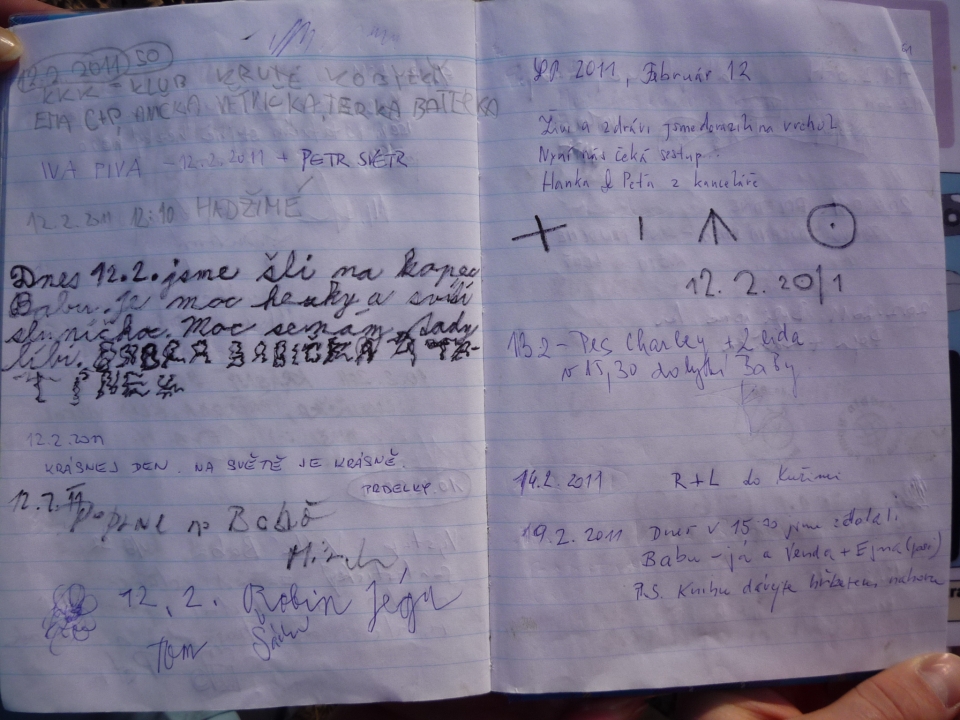 12.2.2011 SO
KKK - KLUB KRUTÉ
EMA C+P, ANČKA VĚTVIČKA, TERKA BATERKA
IVA PIVA - 12.2.2011 + PETR SVĚTR
12.2.2011 12:10 HADŽIME
Dnes 12.2. jsme šli na kopec
Babu. Je moc hezky a svítí
sluníčko. Moc se nám tady
líbí.
12.2.2011
KRÁSNEJ DEN. NA SVĚTĚ JE KRÁSNĚ.
PRDELKY
12.2.11
Poprvé na Babě
12.2. Robin
Tom
51
2011, Február 12
Živi a zdrávi jsme dorazili na vrchol.
Nyní nás čeká sestup...
Hanka & Peťa z kanceláře
12.2.2011
13.2 - Pes Charley +
v 15,30 dobyli Baby
14.2.2011 R+L do Kuřimi
19.2.2011 Dnes v 15.30 jsme zdolali
Babu - já a Venda +
P.S. Knihu dávejte hřbetem nahoru